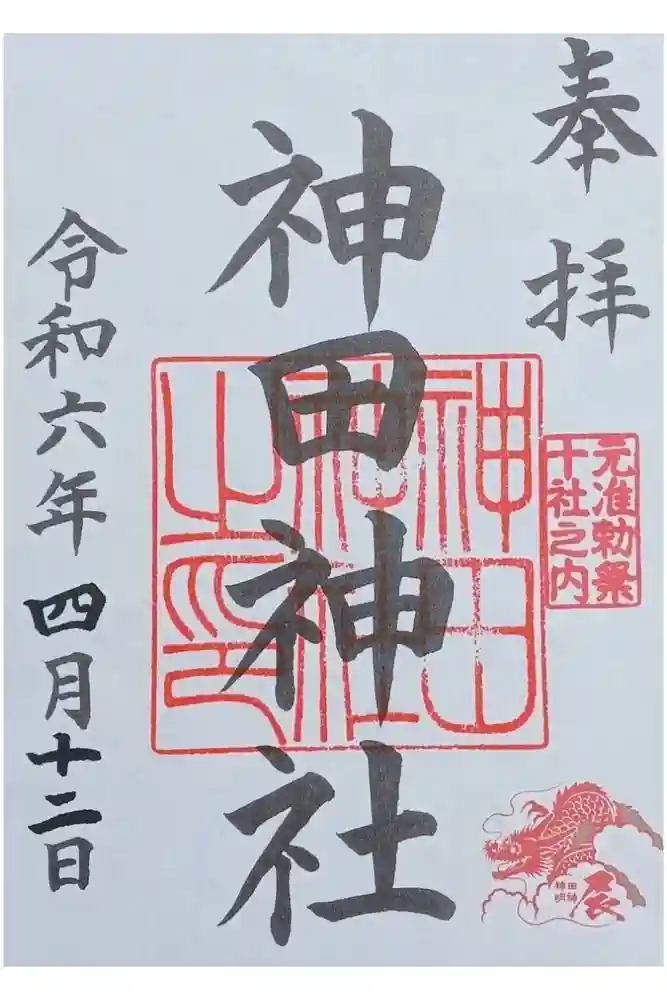 奉拝
元准勅祭
十社之内
神田神社
神田
神社
之印
辰
神田
明神
令和六年四月十二日